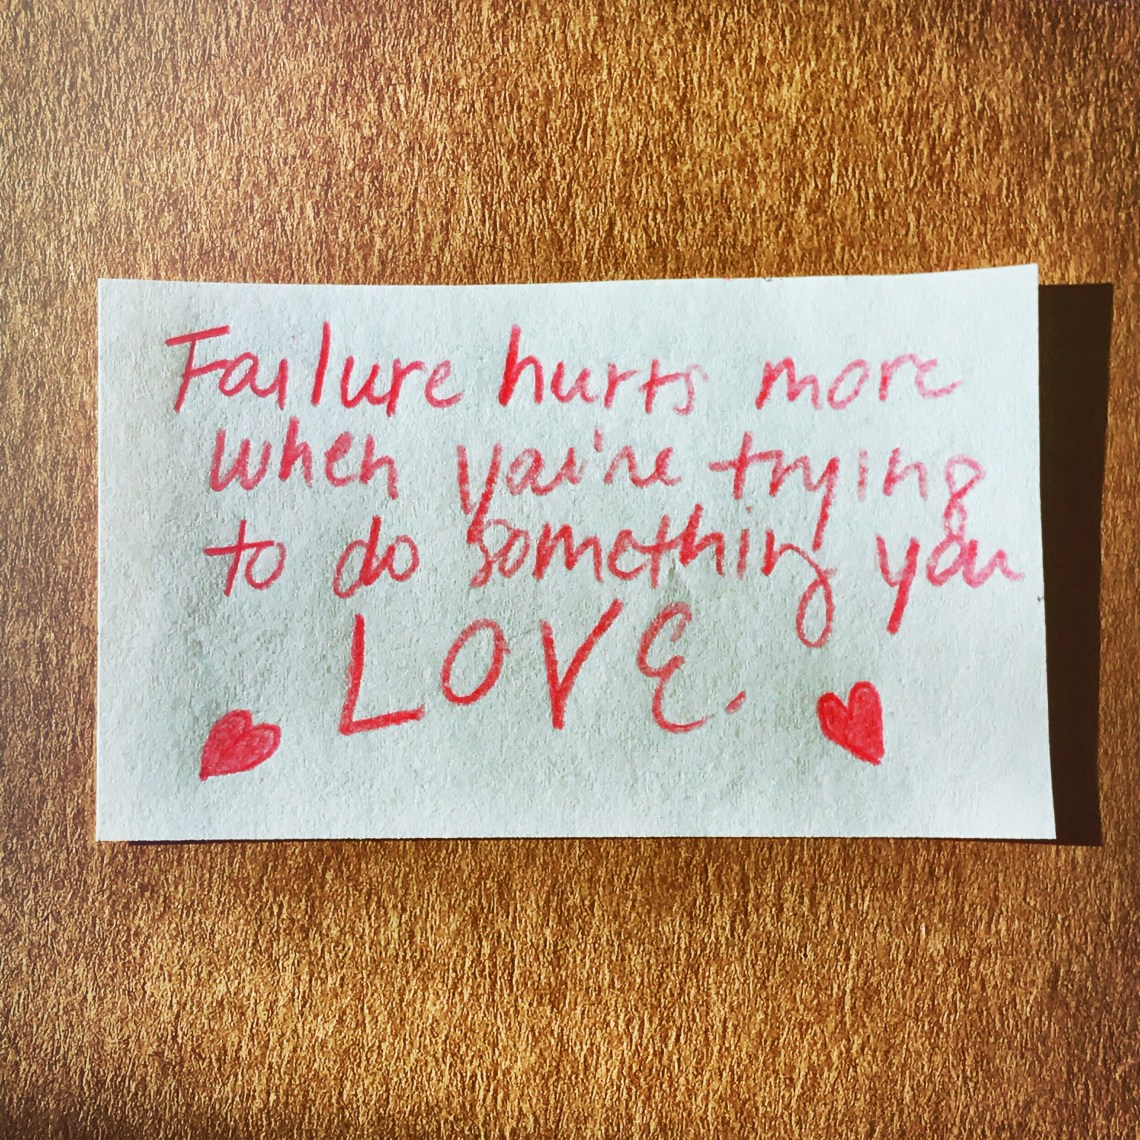 Failure hurts more
when you're trying
to do something you
LOVE.